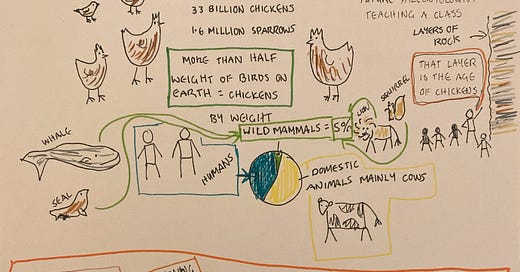 33 BILLION CHICKENS
1.6 MILLION SPARROWS
MORE THAN HALF
WEIGHT OF BIRDS ON
EARTH = CHICKENS
TEACHING A CLASS
LAYERS OF
ROCK
THAT LAYER
IS THE AGE
OF CHICKENS
BY WEIGHT
WILD MAMMALS = 5%
LION
SQUIRREL
WHALE
SEAL
HUMANS
DOMESTIC
ANIMALS MAINLY COWS